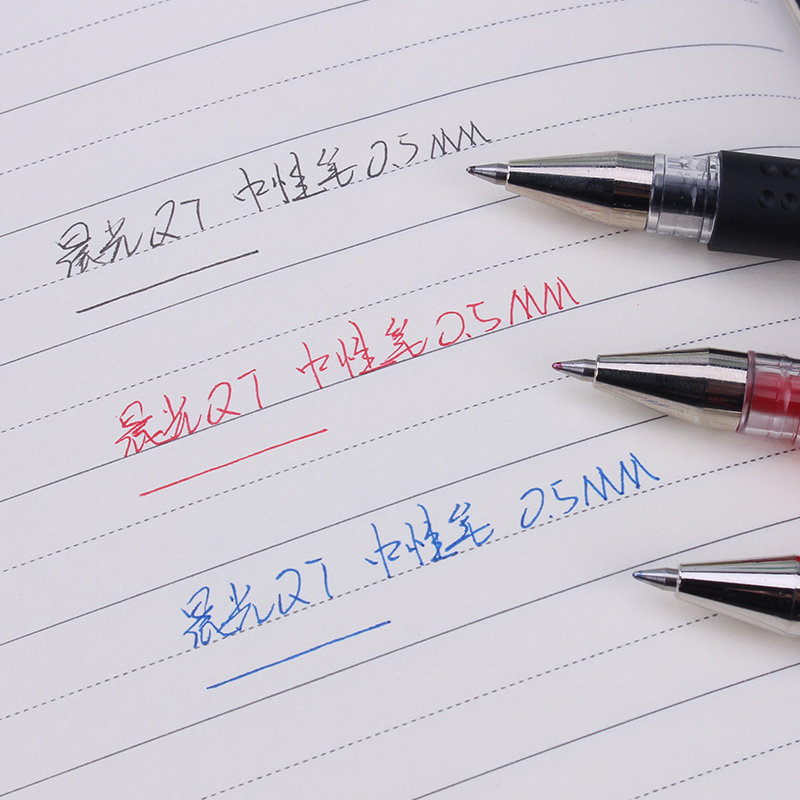 晨光QT 中性笔0.5MM
晨光QT 中性笔0.5MM
晨光QT 中性笔 0.5MM